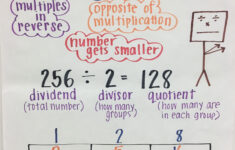 multiples
in
reverse
opposite of
multiplication
number
gets smaller
256 ÷ 2 = 128
dividend divisor quotient
(total number) (how many groups) (how many are in each group)
1 2 8